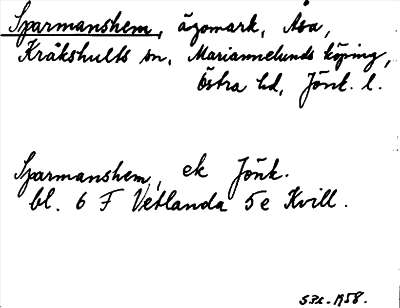 Sparmanshem, ägomark, Åsa,
Kråkshults sn, Mariannelunds köping,
Östra hd, Jönk. l.
Sparmanshem, ek Jönk.
bl. 6 F Vetlanda 5e Kvill.
1958.